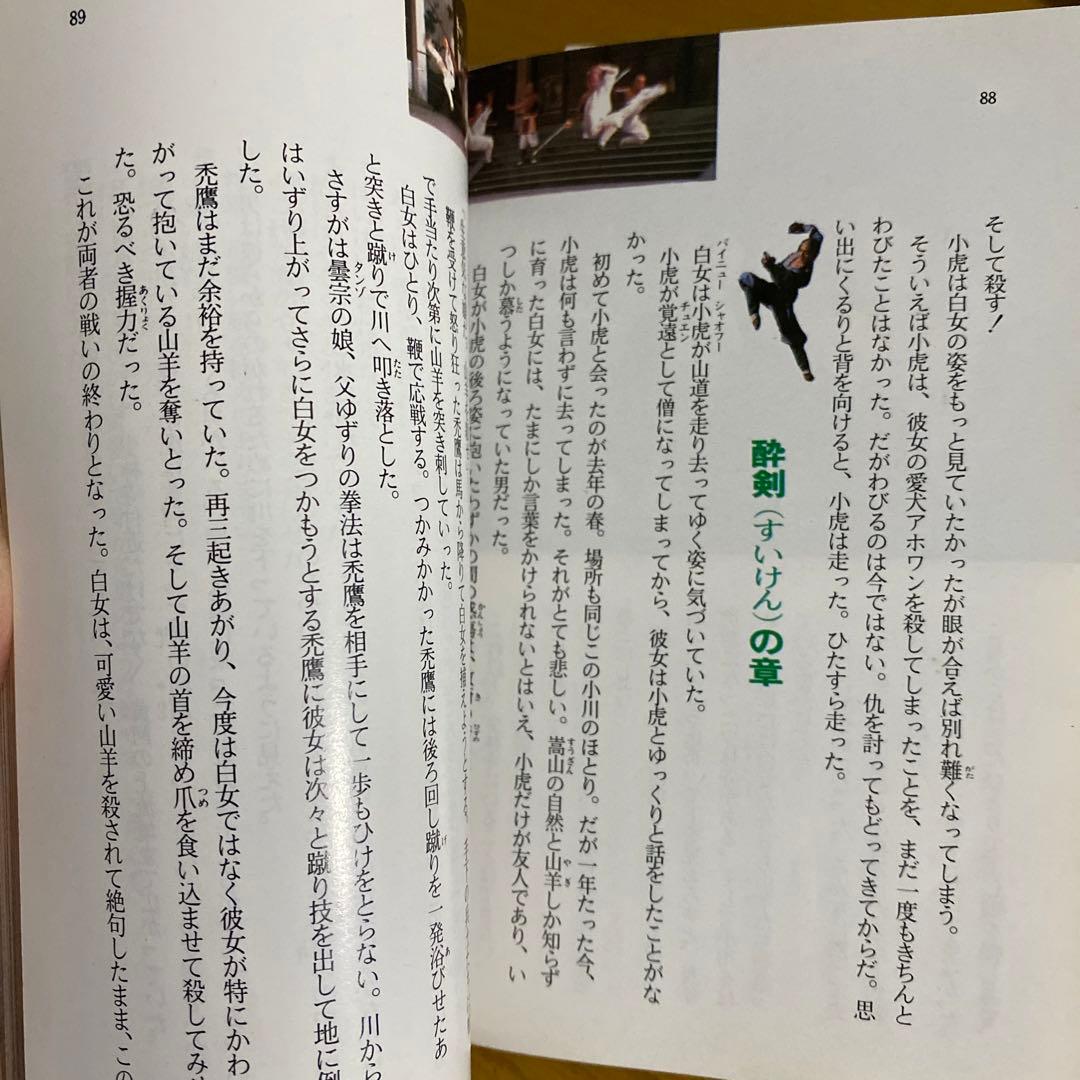 88
そして殺す！
小虎は白女の姿をもっと見ていたかったが眼が合えば別れ難くなってしまう。
そういえば小虎は、彼女の愛犬アホワンを殺してしまったことを、まだ一度もきちんと
わびたことはなかった。だがわびるのは今ではない。仇を討ってもどってきてからだ。思
い出にくるりと背を向けると、小虎は走った。ひたすら走った。
酔剣（すいけん）の章
白女は小虎が山道を走り去ってゆく姿に気づいていた。
小虎が覚遠として僧になってしまってから、彼女は小虎とゆっくりと話をしたことがな
かった。
初めて小虎と会ったのが去年の春。場所も同じこの小川のほとり。だが一年たった今、
小虎は何も言わずに去ってしまった。それがとても悲しい。嵩山の自然と山羊しか知らず
に育った白女には、たまにしか言葉をかけられないとはいえ、小虎だけが友人であり、い
つしか慕うようになっていた男だった。
白女が小虎の後ろ姿に抱いたわずかの間の
89
鞭を受けて怒り狂った禿鷹は馬から降りて白女を捕えようとする。
で手当たり次第に山羊を突き刺していった。
白女はひとり、鞭で応戦する。つかみかかった禿鷹には後ろ回し蹴りを一発浴びせたあ
と突きと蹴りで川へ叩き落とした。
さすがは曇宗の娘、父ゆずりの拳法は禿鷹を相手にして一歩もひけをとらない。川から
はいずり上がってさらに白女をつかもうとする禿鷹に彼女は次々と蹴り技を出して地に倒
した。
禿鷹はまだ余裕を持っていた。再三起きあがり、今度は白女ではなく彼女が特にかわ
がって抱いている山羊を奪いとった。そして山羊の首を締め爪を食い込ませて殺してみせ
た。恐るべき握力だった。
これが両者の戦いの終わりとなった。白女は、可愛い山羊を殺されて絶句したまま、この